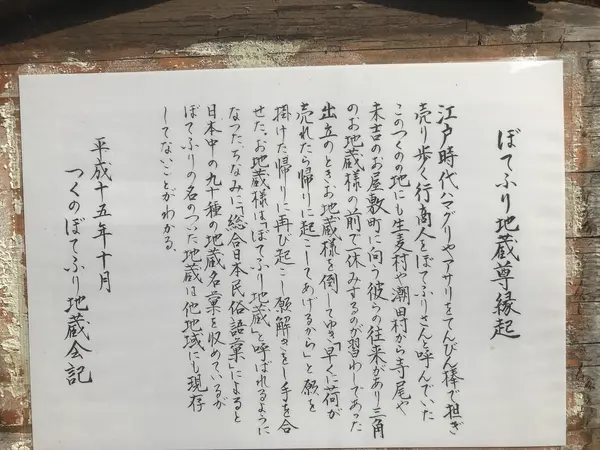 ぼてふり地蔵尊縁起
江戸時代ハマグリやアサリをてんびん棒で担ぎ
売り歩く行商人をぼてふりさんと呼んでいた
このつくのの地にも生麦村や潮田村から寺尾や
末吉のお屋敷町に向う彼らの往来があり三角
のお地蔵様の前で休みするのが習わしであった
出立のときお地蔵様を倒してゆき「早くに荷が
売れたら帰りに起こしてあげるから」と願を
掛けた帰りに再び起こし願解きをし手を合
せた。お地蔵様はぼてふり地蔵と呼ばれるように
なった。ちなみに「総合日本民俗語彙」によると
日本中の九十種の地蔵名菓を収めているが
ぼてふりの名のついた地蔵は他地域にも現存
してないことがわかる。
平成十五年十月
つくのぼてふり地蔵会記